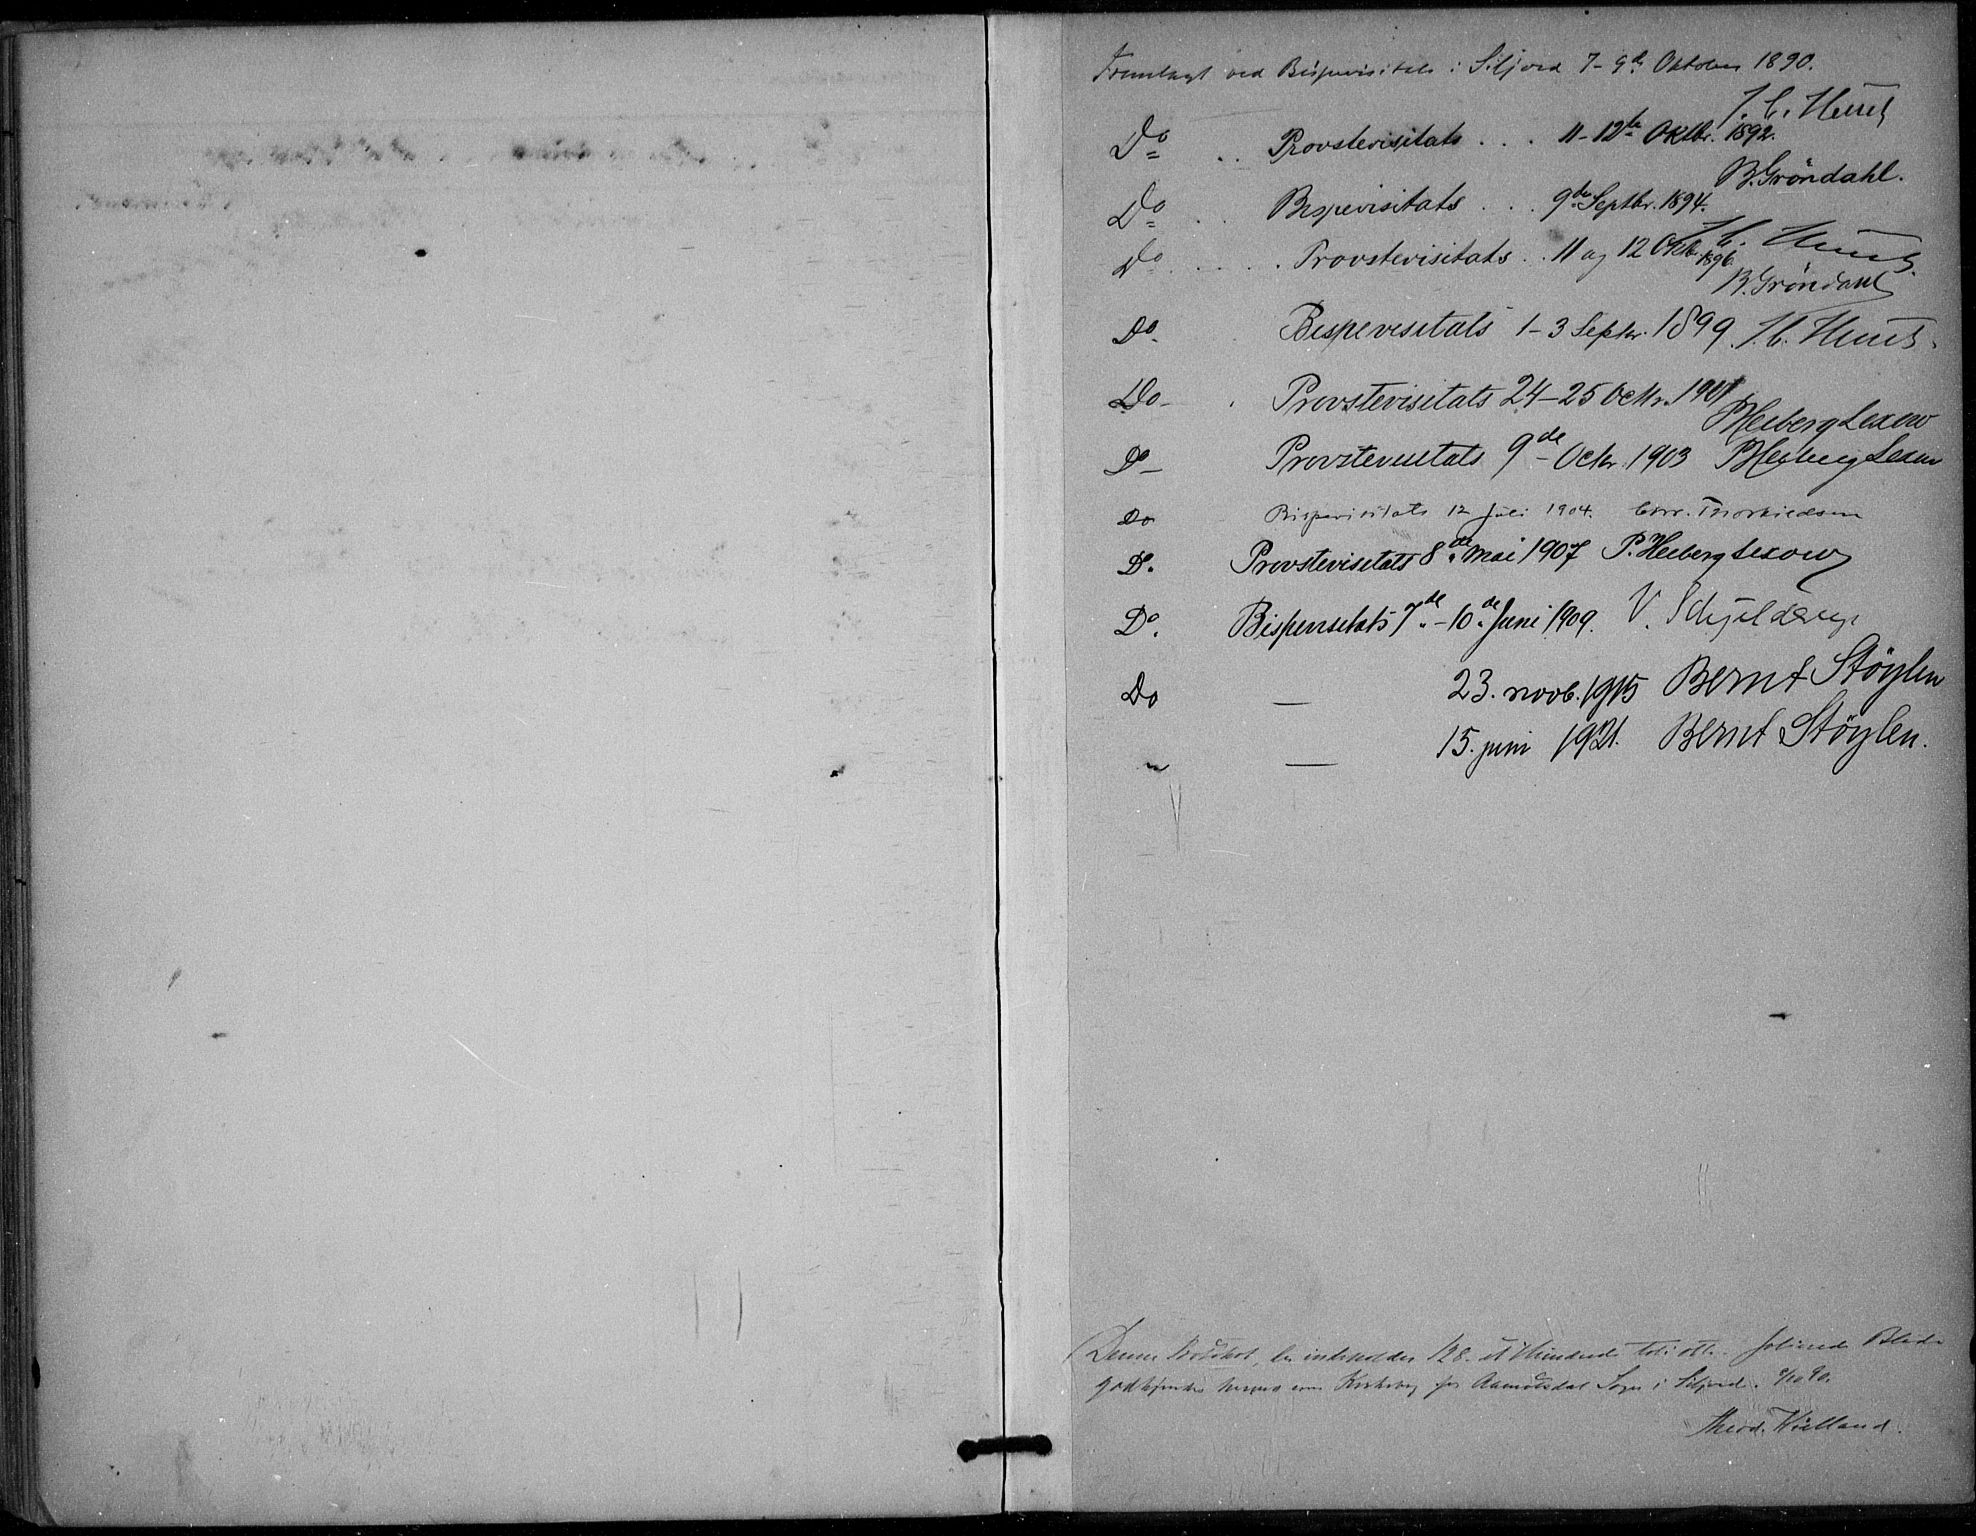 Fremlagt ved Bispevisitats i Siljord 7-9de Oktober 1890.
J. C. Heuch
Do .. Provstevisitats ... 11-12te Oktbr. 1892.
B. Gröndahl.
Do .. Bispevisitats ... 9de Septbr. 1894.
J. C. Heuch.
Do . . . . . Provstevisitats .. 11 og 12 Oktbr 1896.
B. Gröndahl
Do. Bispevisitats 1-3 Septbr. 1899. J. C. Heuch.
Do - . Provstevisitats 24-25 Octbr. 1901
P. Heiberg Lexow
Do - Provstevisitats 9de Octbr. 1903 P. Heiberg Lexow
Do Bispevisitats 12 Juli 1904. Chr. Thorkildsen
Do. Provstevisitats 8de Mai 1907 P. Heiberg Lexow
Do. Bispevisitats 7de - 10de Juni 1909. V. Schjelderup
Do — 23. novb. 1915 Bernt Stöylen
" — 15. juni 1921. Bernt Stöylen.
Denne Protokol, der indeholder 128 et Hundrede Blade
godkjendes herved som Kirkebog for Aamotsdal Sogn i Siljord.
Theod. Kielland.